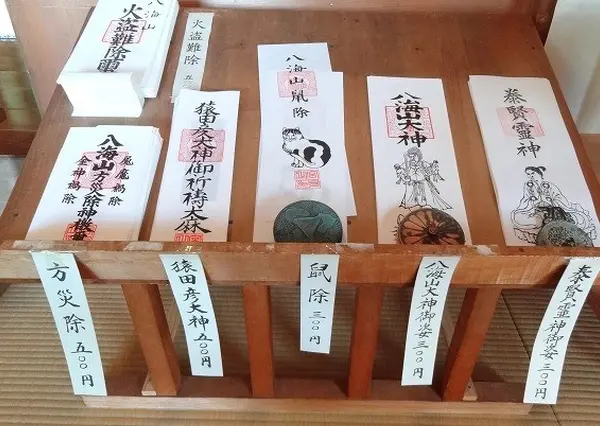 八海山
火盗難除霊
火盗難除
五
八海山
鼠除
猿田彦大神御祈祷大麻
八海山大神
泰賢靈神
八海山方災除神璽
鬼魔禍除
金神禍除
方災除 五〇〇円
猿田彦大神 五〇〇円
鼠除 三〇〇円
八海山大神御姿 三〇〇円
泰賢靈神御姿 三〇〇円